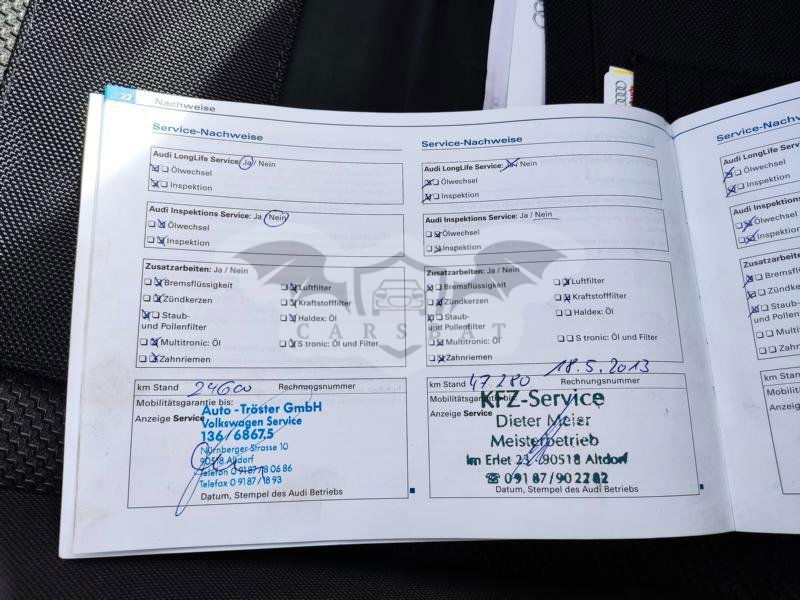 22 Nachweise
Service-Nachweise
Audi LongLife Service: Ja / Nein
Ölwechsel
Inspektion
Audi Inspektions Service: Ja / Nein
Ölwechsel
Inspektion
Zusatzarbeiten: Ja / Nein
Bremsflüssigkeit Luftfilter
Zündkerzen Kraftstofffilter
Staub- Haldex: Öl
und Pollenfilter
Multitronic: Öl S tronic: Öl und Filter
Zahnriemen
km Stand 24600 Rechnungsnummer
Mobilitätsgarantie bis:
Anzeige Service
Auto-Tröster GmbH
Volkswagen Service
136/68675
Nürnberger Strasse 10
90518 Altdorf
Telefon 0 91 87 / 8 06 86
Telefax 0 91 87 / 18 93
Datum, Stempel des Audi Betriebs
Service-Nachweise
Audi LongLife Service: Ja / Nein
Ölwechsel
Inspektion
Audi Inspektions Service: Ja / Nein
Ölwechsel
Inspektion
Zusatzarbeiten: Ja / Nein
Bremsflüssigkeit Luftfilter
Zündkerzen Kraftstofffilter
Staub- Haldex: Öl
und Pollenfilter
Multitronic: Öl S tronic: Öl und Filter
Zahnriemen
18.5.2013
km Stand 47.280 Rechnungsnummer
Mobilitätsgarantie bis:
Anzeige Service
KFZ-Service
Dieter Meier
Meisterbetrieb
Im Erlet 23 · 90518 Altdorf
☎ 0 91 87 / 90 22 82
Datum, Stempel des Audi Betriebs
Service-Nachw
Audi LongLife Servic
Ölwechsel
Inspektion
Audi Inspektions
Ölwechsel
Inspektion
Zusatzarbeiten:
Bremsflüssi
Zündkerzen
Staub-
und Pollenfilter
Multitronic
Zahnriemen
km Stand
Mobilitätsgara
Anzeige Serv
CARSBAT